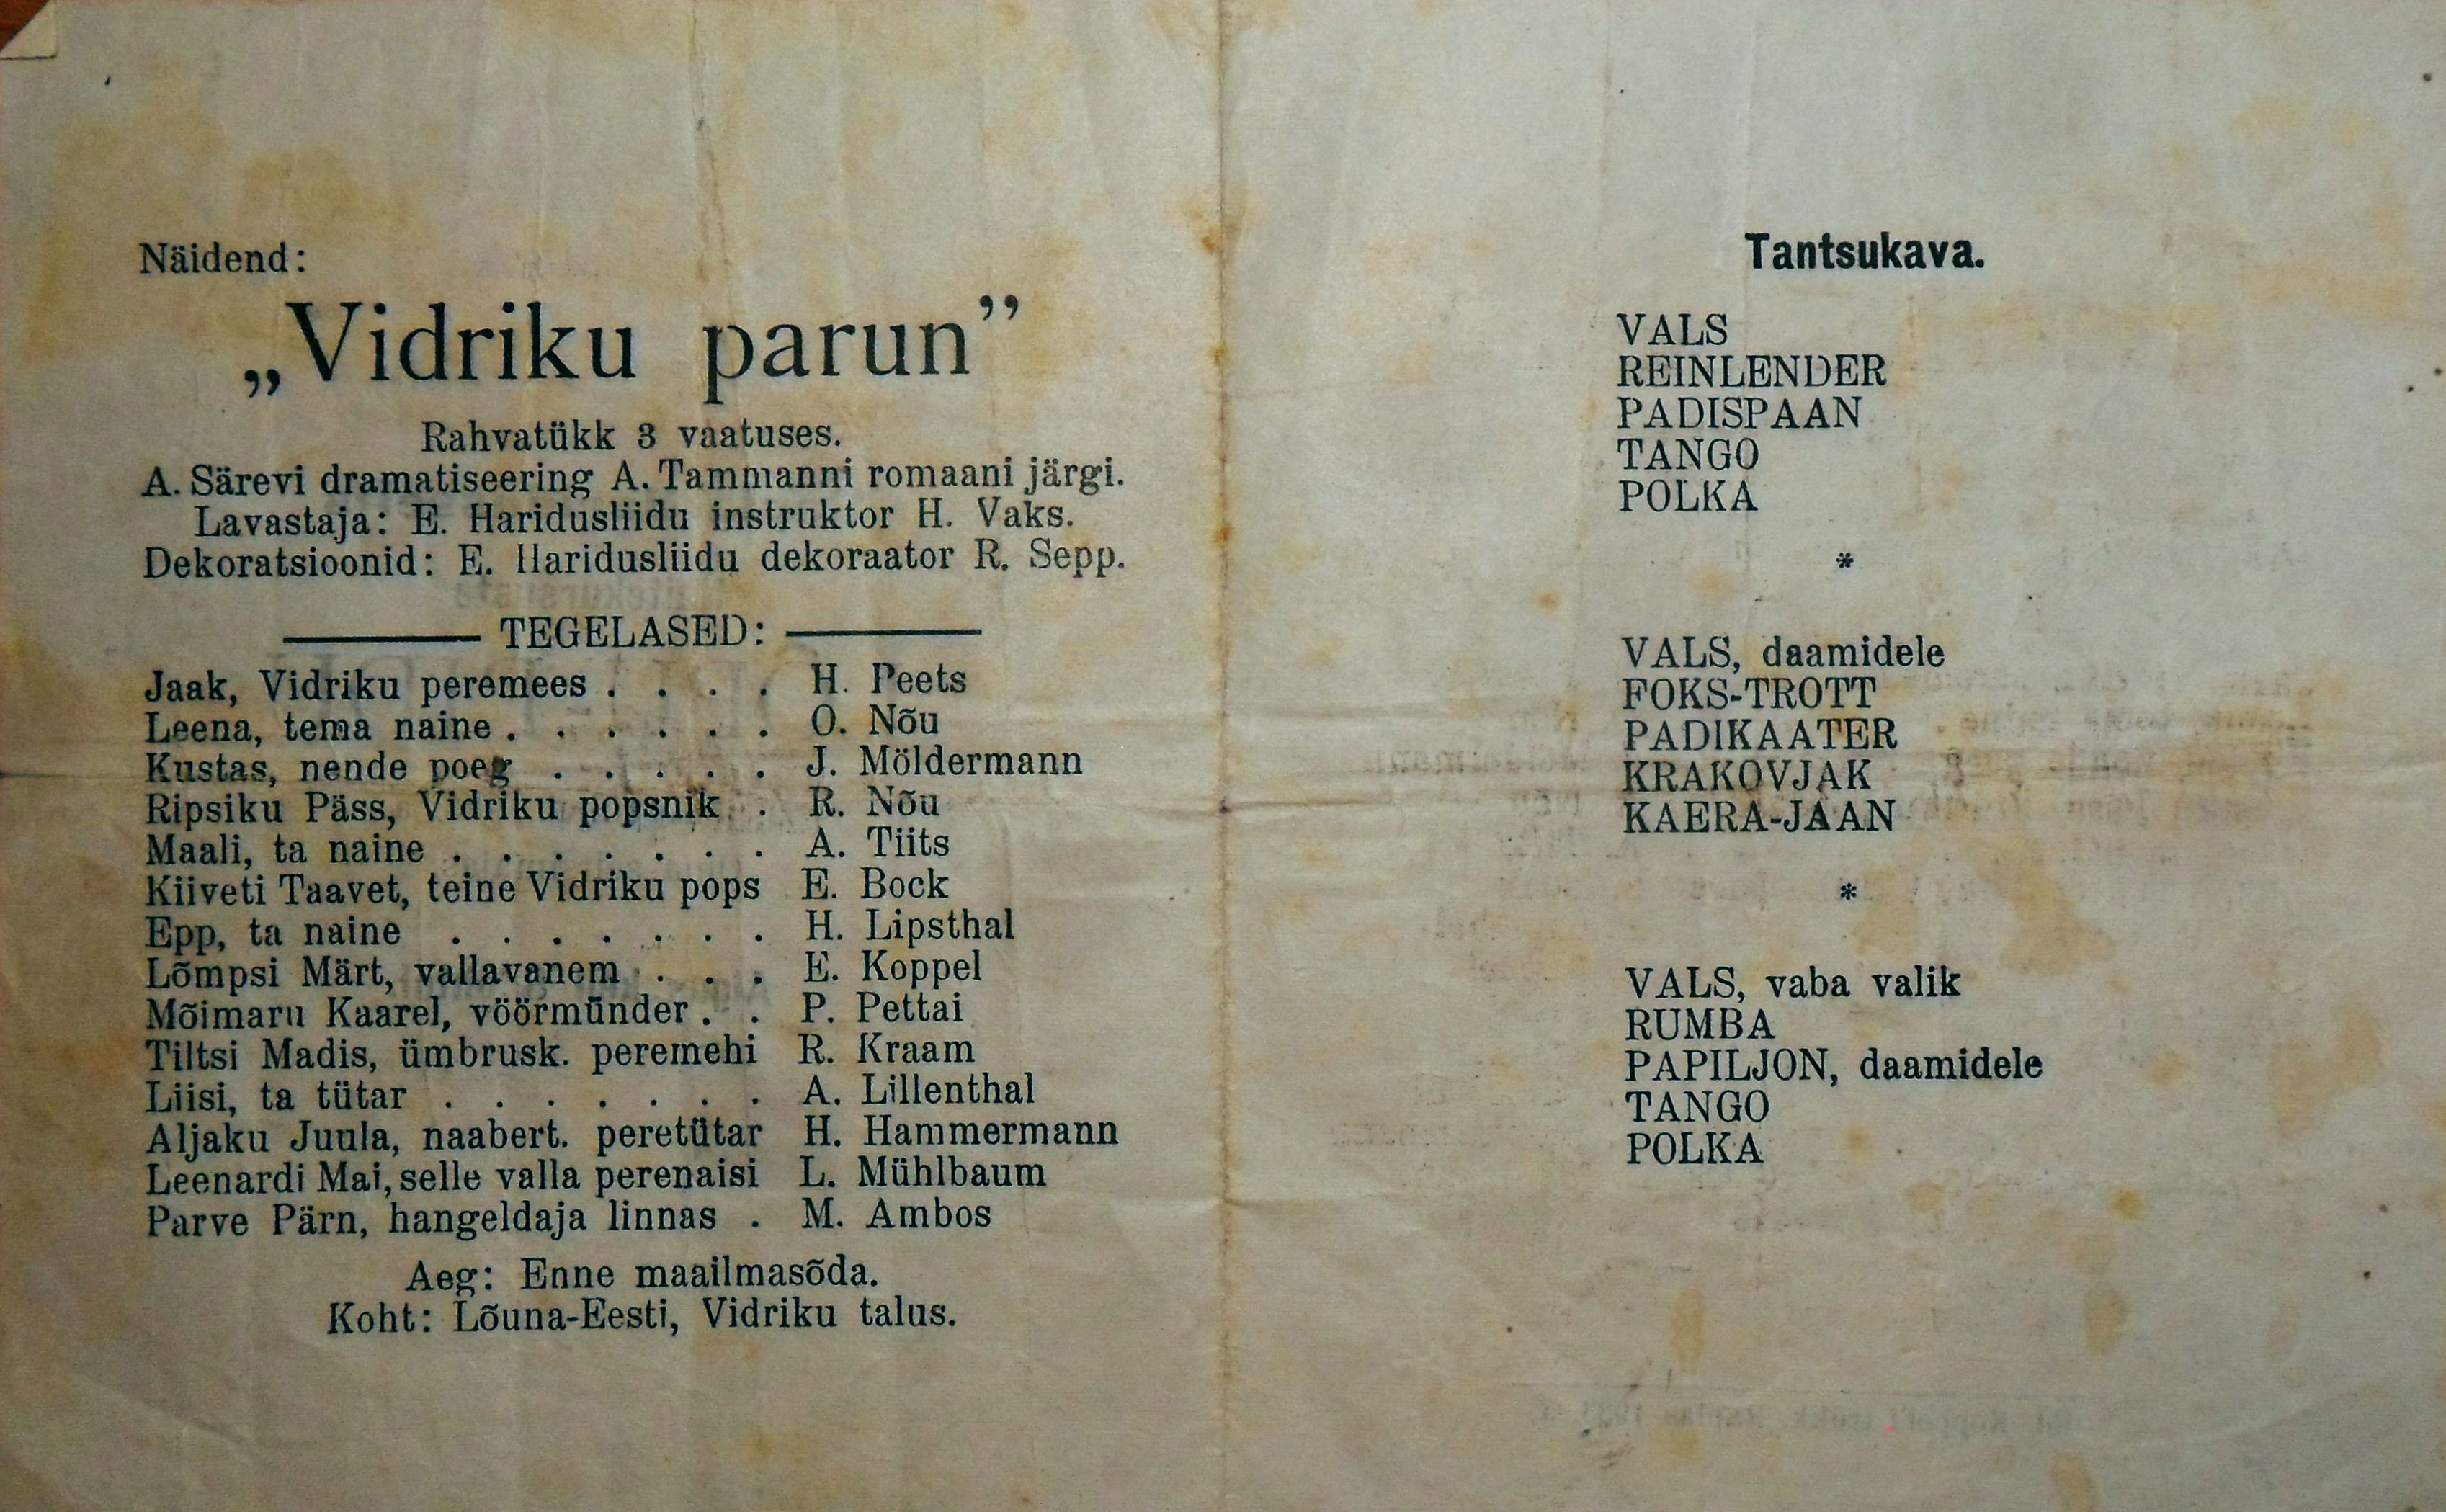 Näidend:
„Vidriku parun”
Rahvatükk 3 vaatuses.
A. Särevi dramatiseering A. Tammanni romaani järgi.
Lavastaja: E. Haridusliidu instruktor H. Vaks.
Dekoratsioonid: E. Haridusliidu dekoraator R. Sepp.
TEGELASED:
Jaak, Vidriku peremees . . . . H. Peets
Leena, tema naine . . . . . . O. Nõu
Kustas, nende poeg . . . . . J. Möldermann
Ripsiku Päss, Vidriku popsnik . R. Nõu
Maali, ta naine . . . . . . . A. Tiits
Kiiveti Taavet, teine Vidriku pops E. Bock
Epp, ta naine . . . . . . . H. Lipsthal
Lõmpsi Märt, vallavanem . . . E. Koppel
Mõimaru Kaarel, vöörmünder . . P. Pettai
Tiltsi Madis, ümbrusk. peremehi R. Kraam
Liisi, ta tütar . . . . . . . A. Lillenthal
Aljaku Juula, naabert. peretütar H. Hammermann
Leenardi Mai, selle valla perenaisi L. Mühlbaum
Parve Pärn, hangeldaja linnas . M. Ambos
Aeg: Enne maailmasõda.
Koht: Lõuna-Eesti, Vidriku talus.
Tantsukava.
VALS
REINLENDER
PADISPAAN
TANGO
POLKA
*
VALS, daamidele
FOKS-TROTT
PADIKAATER
KRAKOVJAK
KAERA-JAAN
*
VALS, vaba valik
RUMBA
PAPILJON, daamidele
TANGO
POLKA